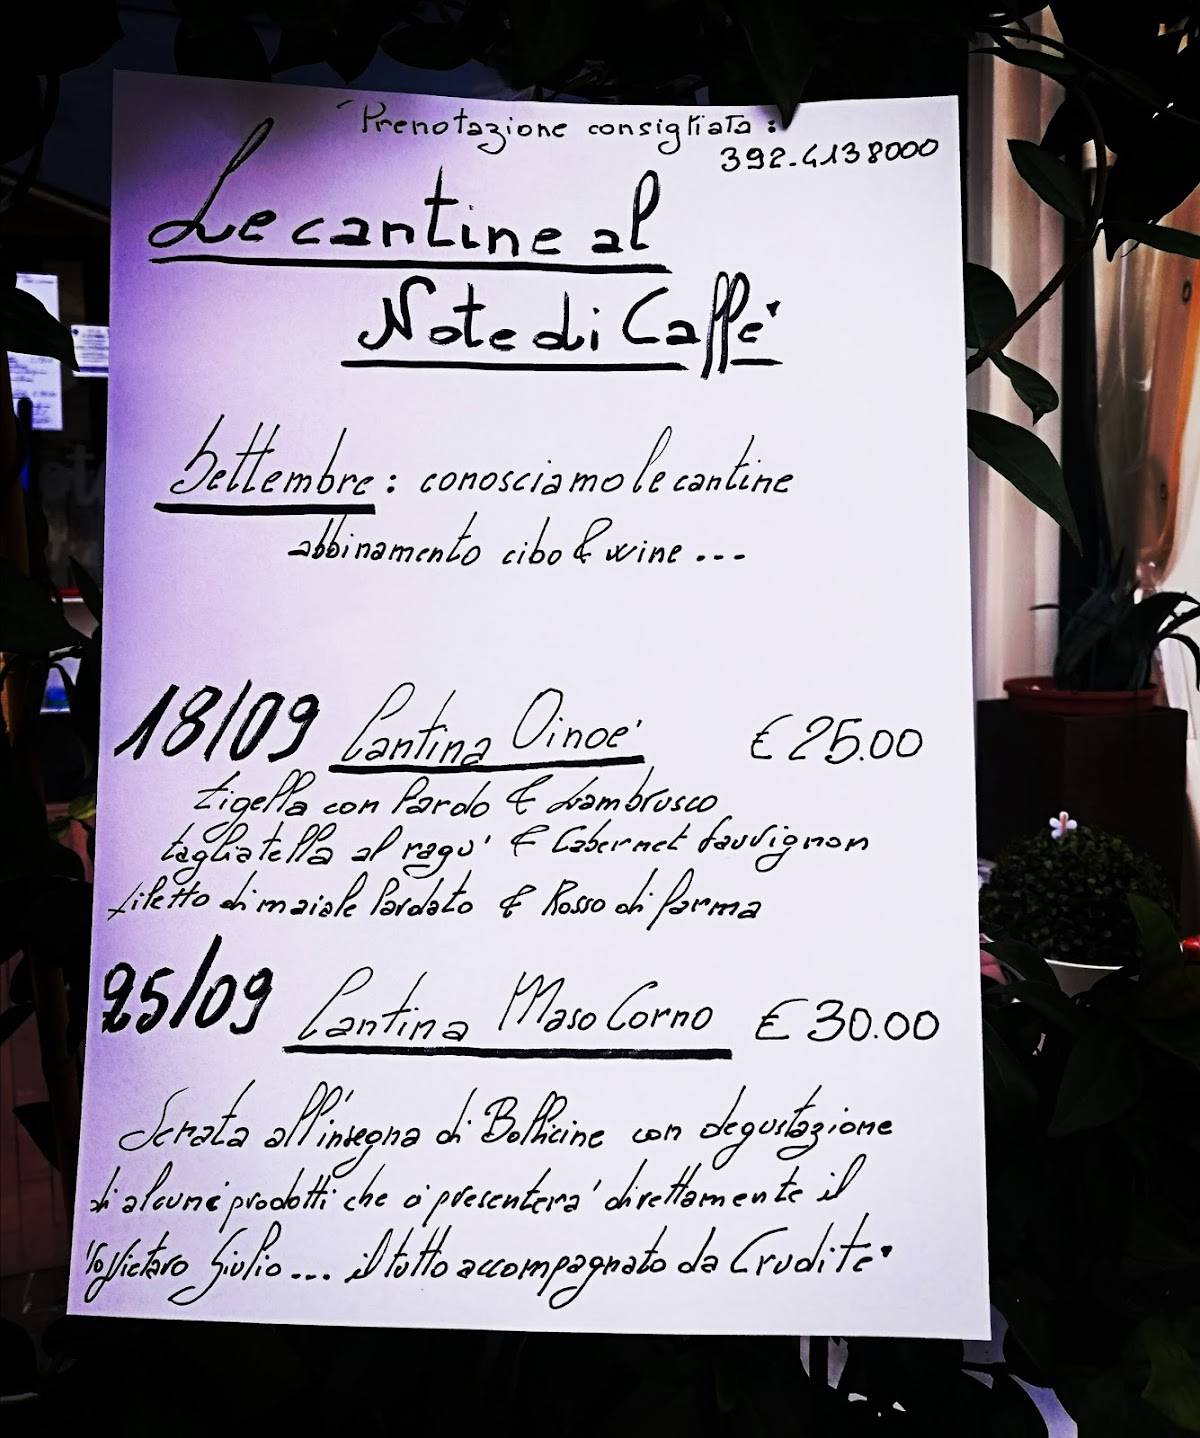 Prenotazione consigliata :
392-4138000
Le cantine al
Note di Caffe'
Settembre : conosciamo le cantine
abbinamento cibo & wine ...
18/09 Cantina Oinoe' € 25.00
tigella con lardo & Lambrusco
tagliatella al ragu' & Cabernet Sauvignon
filetto di maiale lardato & Rosso di Parma
25/09 Cantina Maso Corno € 30.00
Serata all'insegna di Bollicine con degustazione
di alcuni prodotti che ci presentera' direttamente il
Giulio ... il tutto accompagnato da Crudite'